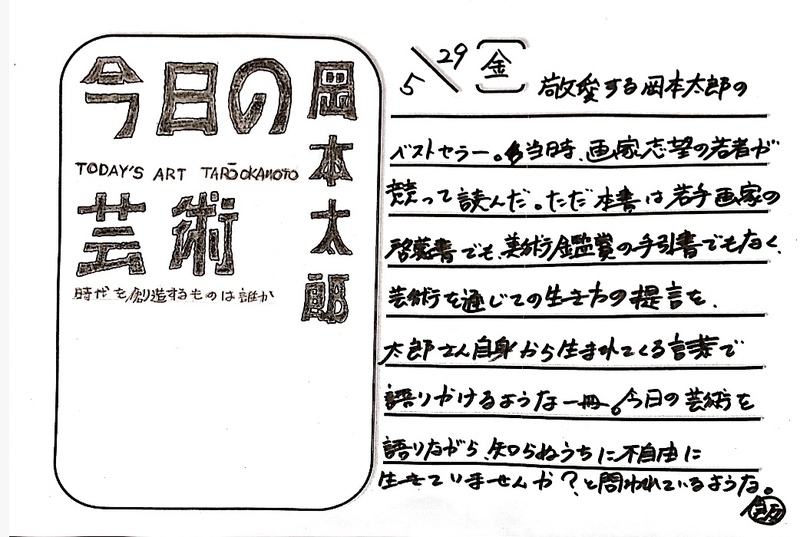 今日の
芸術
岡本太郎
TODAY'S ART TARŌ OKAMOTO
時代を創造するものは誰か
5/29 (金)
敬愛する岡本太郎の
ベストセラー。当時、画家志望の若者が
競って読んだ。ただ本書は若手画家の
啓蒙書でも、美術鑑賞の手引書でもなく、
芸術を通じての生き方の提言を、
太郎さん自身から生まれてくる言葉で
語りかけるような一冊。今日の芸術を
語りながら、知らぬうちに不自由に
生きていませんか?と問われているような。